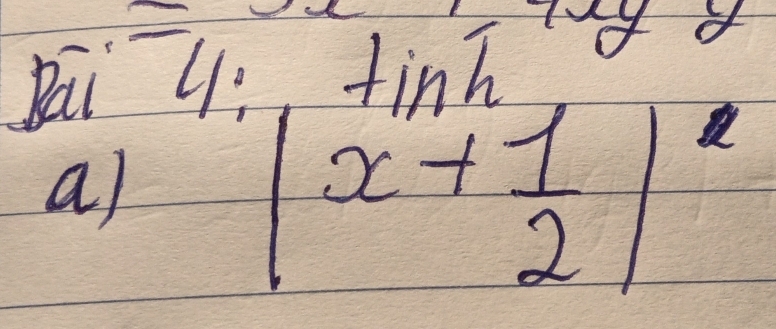 Bài 4: tính
a) |x + 1/2|²